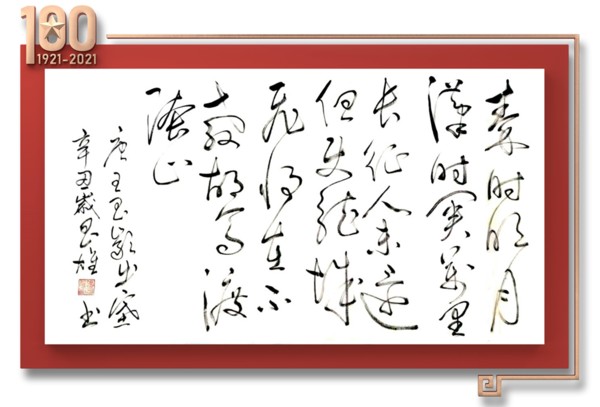 100
1921-2021
秦时明月
漢时关萬里
长征人未还
但使龙城
飞将在不
教胡马渡
阴山
唐王昌龄出塞
辛丑歲雄书